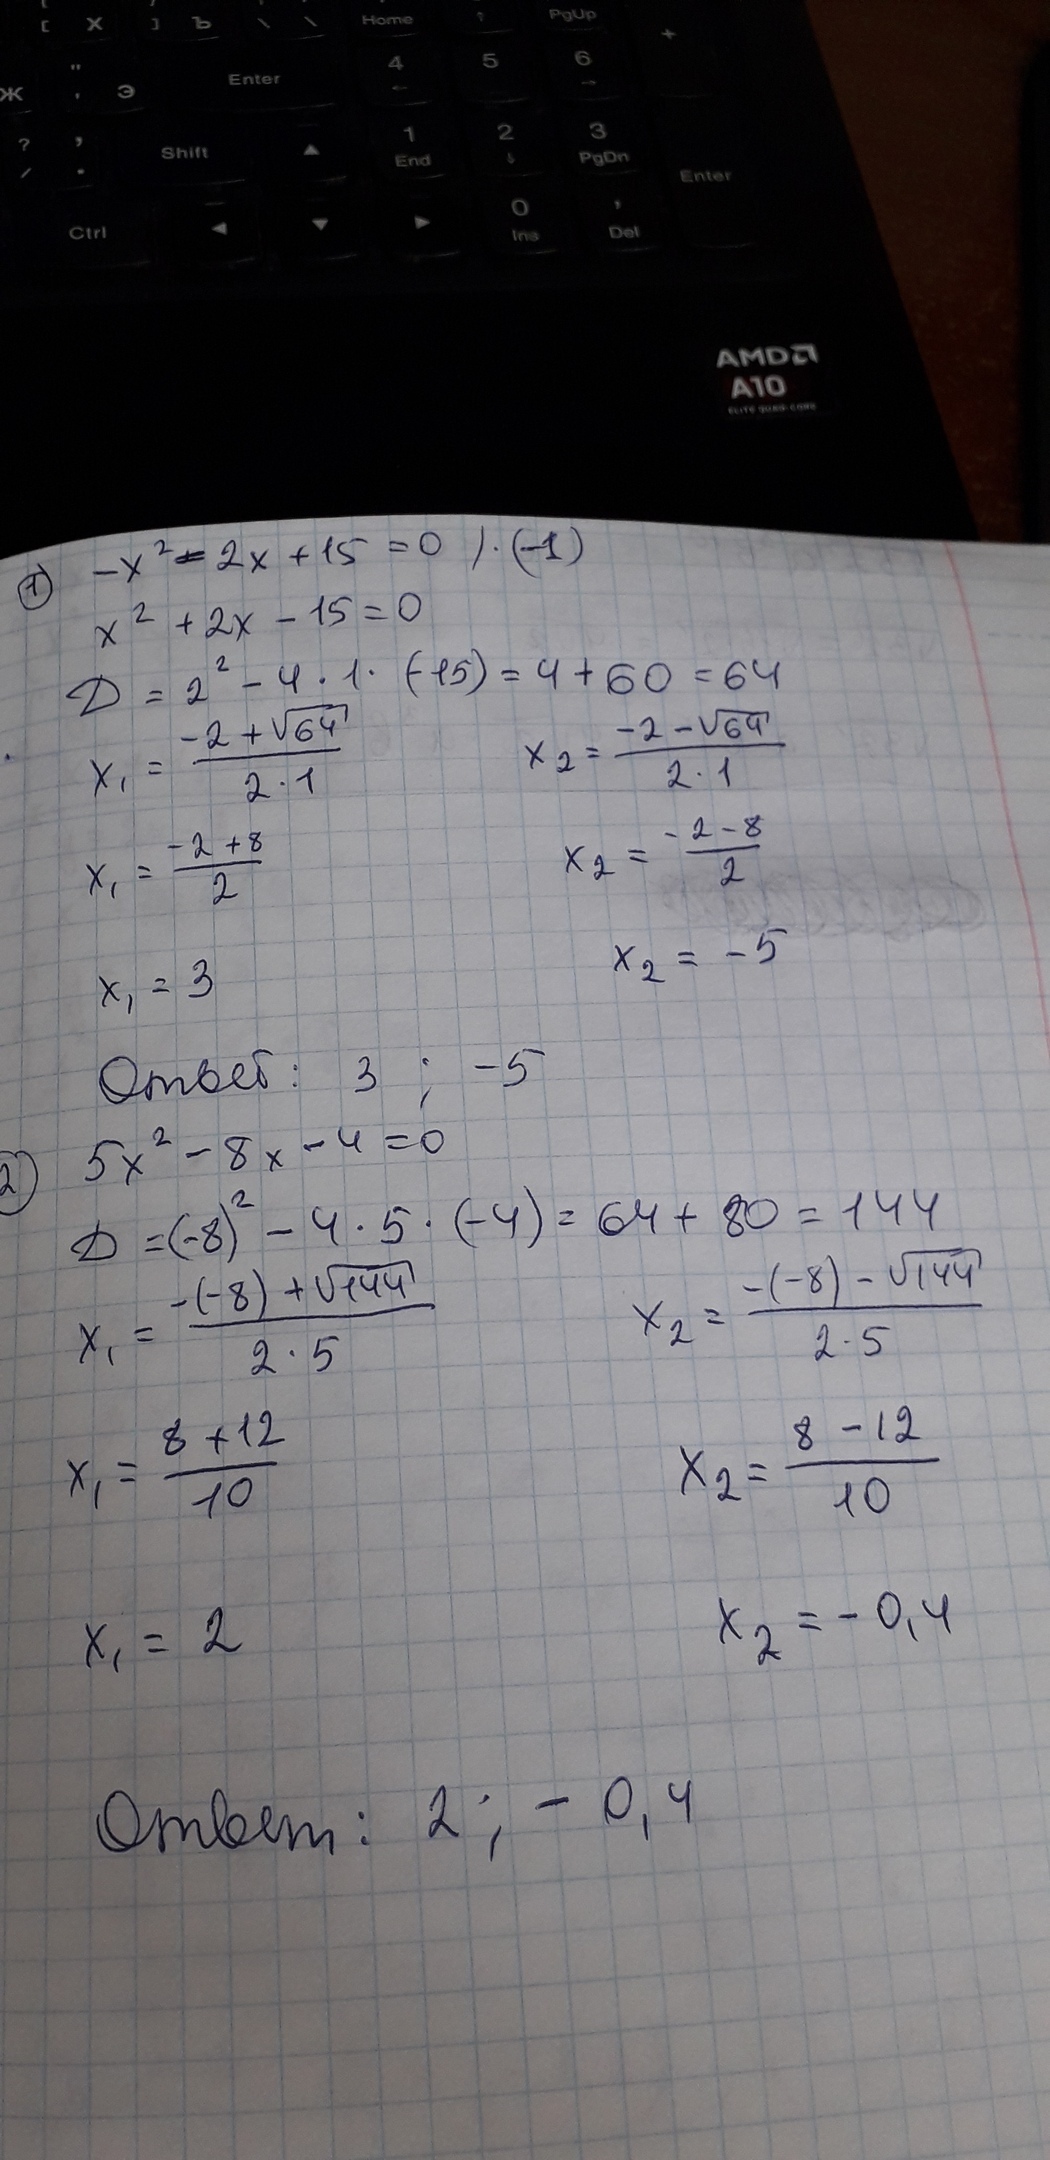 [ X ] Ъ \ \ Home ↑ PgUp
Ж " ' Э Enter 4 ← 5 6 → +
? / , . Shift ▲ 1 End 2 ↓ 3 PgDn Enter
Ctrl ◄ ▼ ► 0 Ins , Del
AMD
A10
ELITE QUAD-CORE
① -x² - 2x + 15 = 0 /·(-1)
x² + 2x - 15 = 0
D = 2² - 4·1·(-15) = 4 + 60 = 64
x₁ = (-2 + √64)/(2·1) x₂ = (-2 - √64)/(2·1)
x₁ = (-2 + 8)/2 x₂ = (-2 - 8)/2
x₁ = 3 x₂ = -5
Ответ: 3 ; -5
② 5x² - 8x - 4 = 0
D = (-8)² - 4·5·(-4) = 64 + 80 = 144
x₁ = (-(-8) + √144)/(2·5) x₂ = (-(-8) - √144)/(2·5)
x₁ = (8 + 12)/10 x₂ = (8 - 12)/10
x₁ = 2 x₂ = -0,4
Ответ: 2 ; -0,4